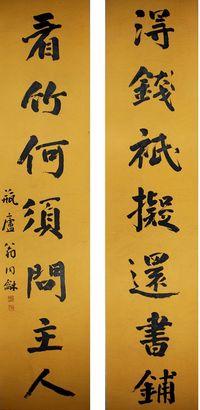 得錢祇擬還書鋪
看竹何須問主人
瓶廬翁同龢